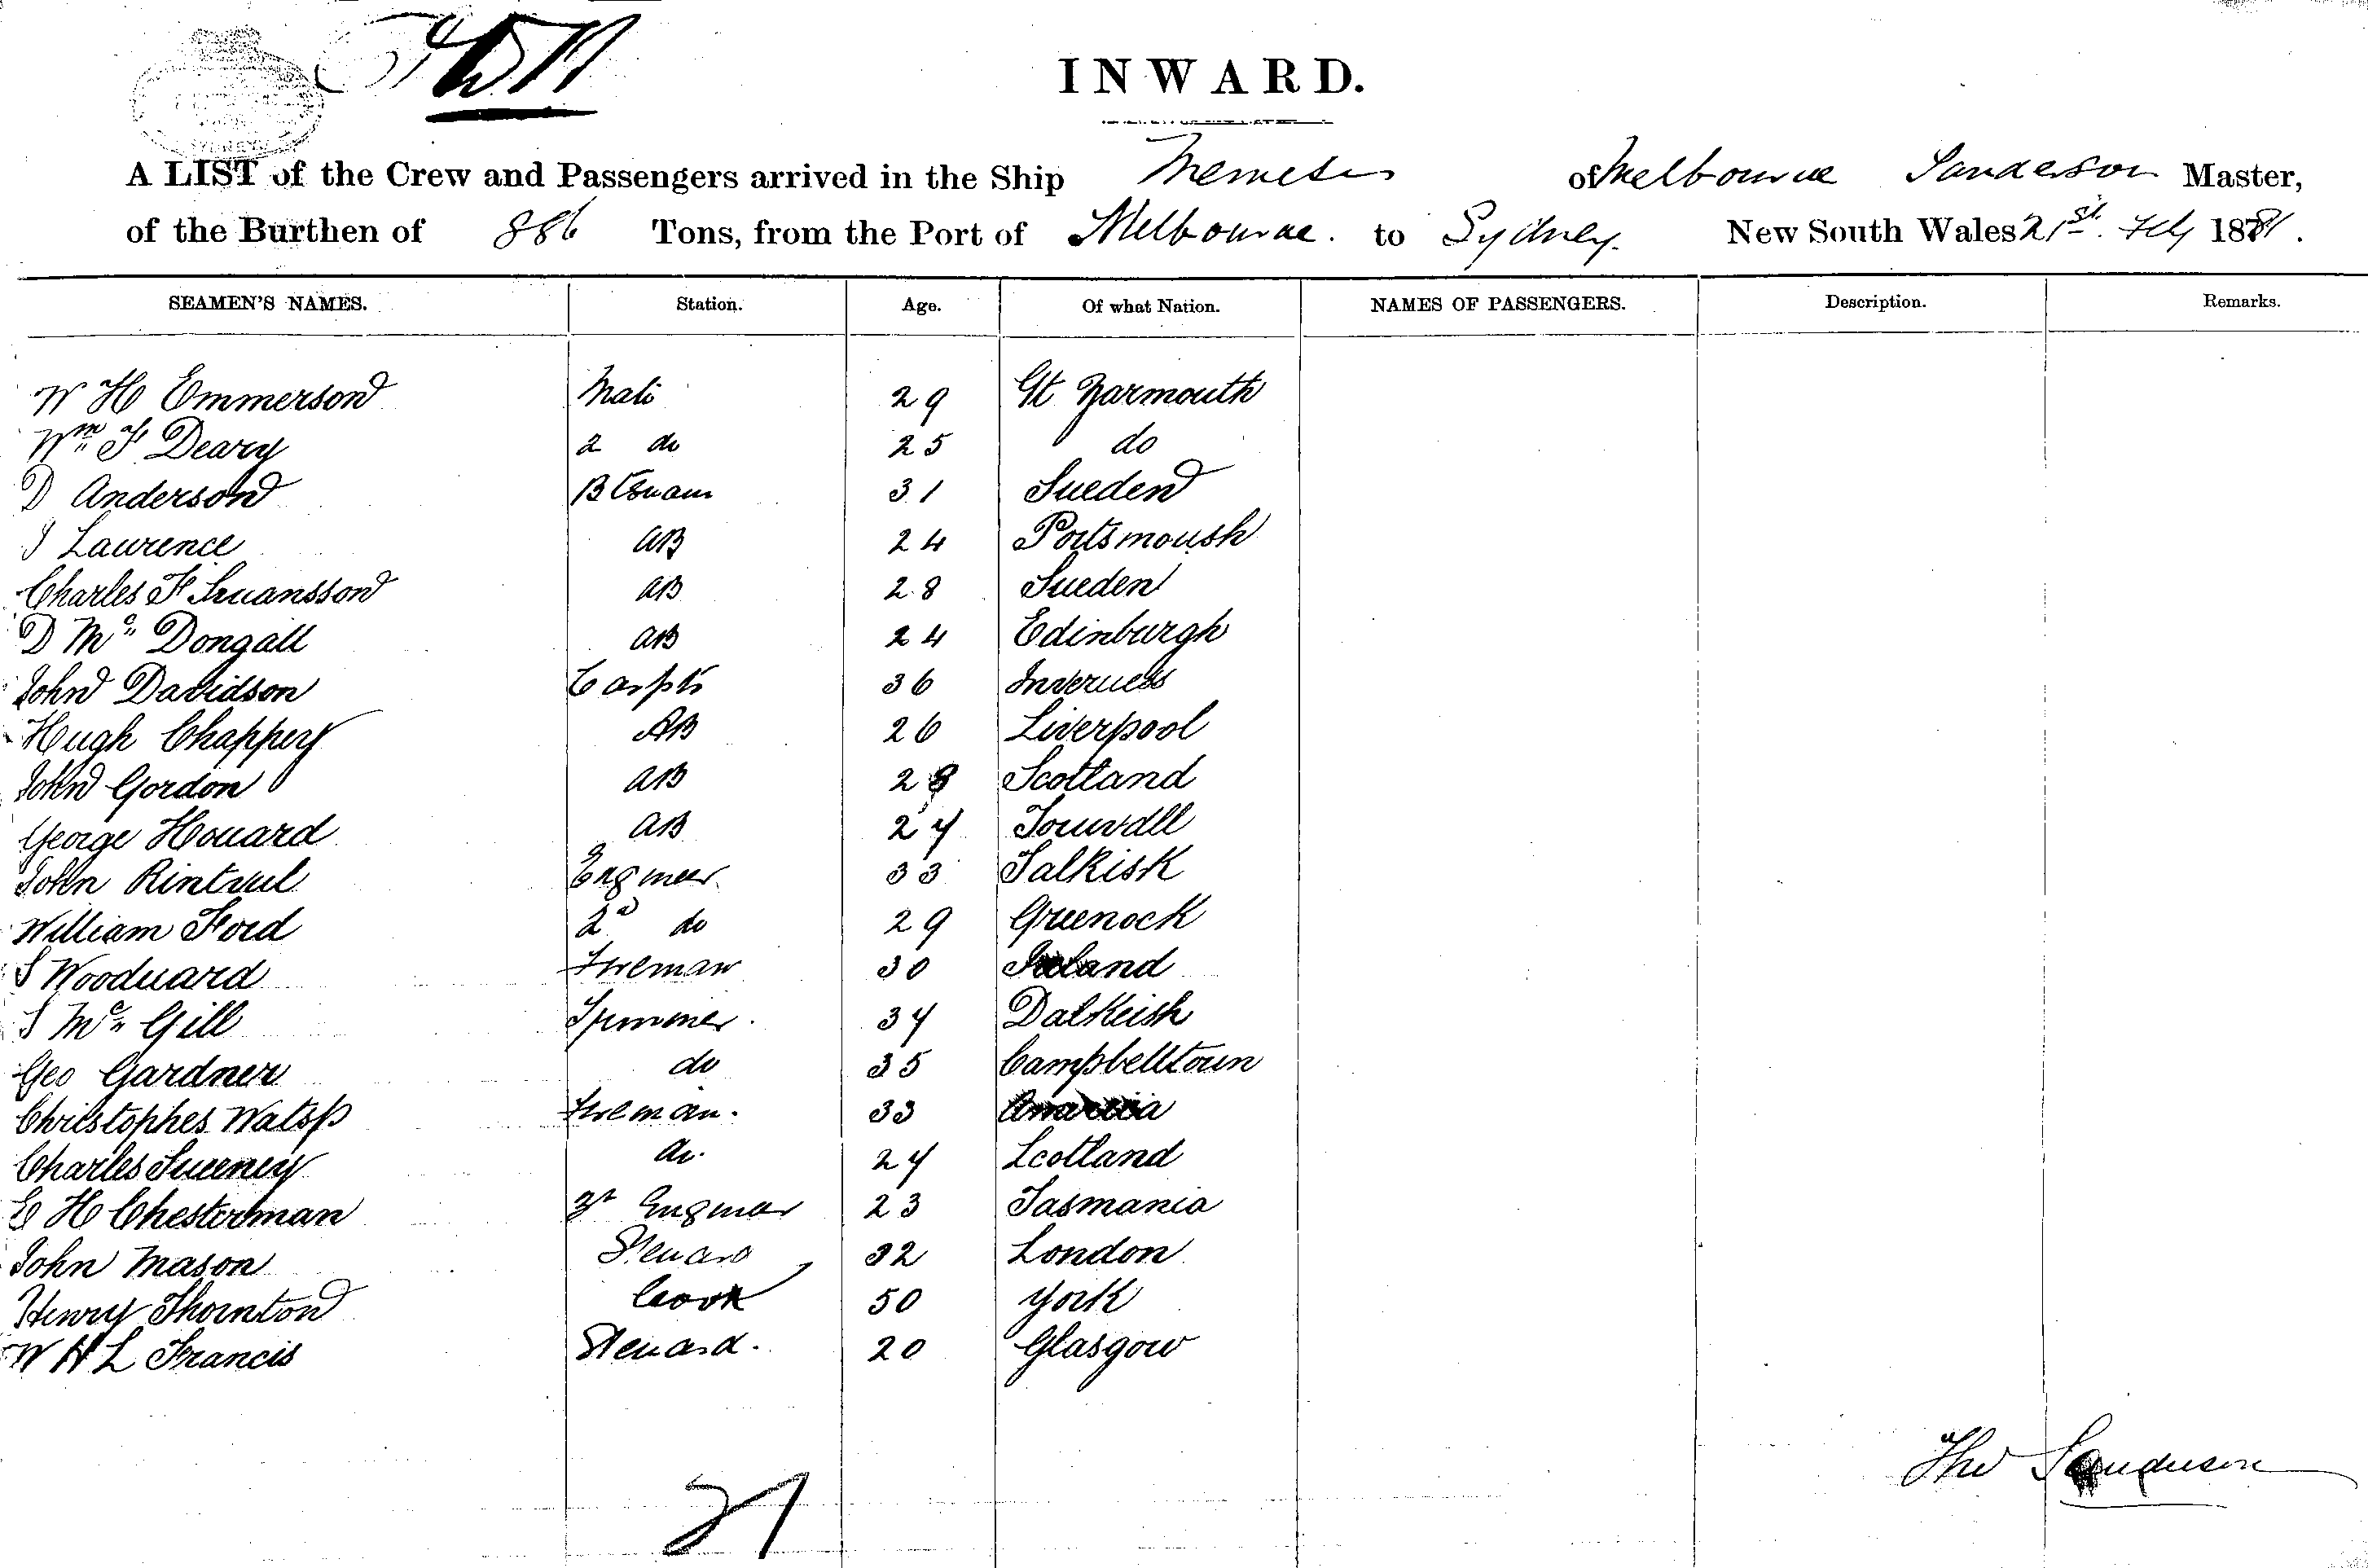 INWARD.
A LIST of the Crew and Passengers arrived in the Ship Nemesis of Melbourne Sanderson Master,
of the Burthen of 886 Tons, from the Port of Melbourne. to Sydney. New South Wales 21st. Feby 1881.
SEAMEN'S NAMES. Station. Age. Of what Nation. NAMES OF PASSENGERS. Description. Remarks.
W H Emmerson Mate 29 Gt Yarmouth
Wm F Deary 2 do 25 do
D Anderson 31 Sueden
J Laurence AB 24 Portsmoush
Charles F Suansson AB 28 Sueden
D Mc Dongall AB 24 Edinburgh
John Davidson Carptr 36 Inverness
Hugh Chappery AB 26 Liverpool
John Gordon AB 28 Scotland
George Houard AB 24
John Rintoul Engineer 33 Falkisk
William Ford 2d do 29 Greenock
S Wooduard Fireman 30 Ireland
S Mc Gill Trimmer. 34 Dalkeish
Geo Gardner do 35 Campbelltoun
Christopher Watsp Fireman. 33 America
Charles Sueeney do. 24 Scotland
E H Chesterman 3r Engineer 23 Tasmania
John Mason Steuard 32 London
Henry Thornton Cook 50 York
W H L Francis Steuard. 20 Glasgow
Tho Sanderson
21